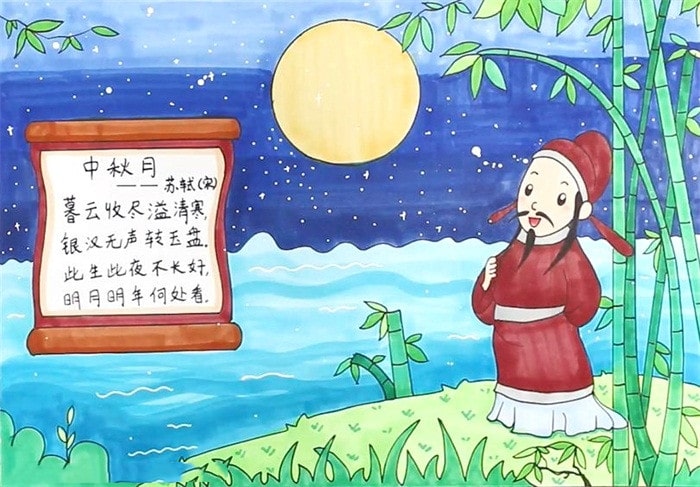 中秋月
——苏轼(宋)
暮云收尽溢清寒,
银汉无声转玉盘.
此生此夜不长好,
明月明年何处看.